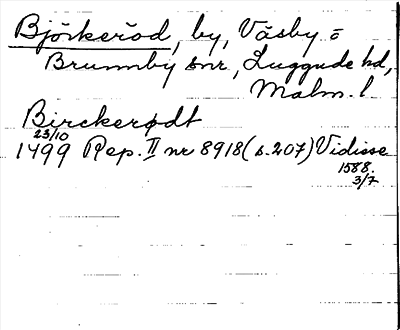 Björkeröd, by, Väsby o
Brunnby snr, Luggude hd,
Malm. l.
Birckerødt
23/10
1499 Rep. II nr 8918 (s. 207) Vidisse
1588.
3/7